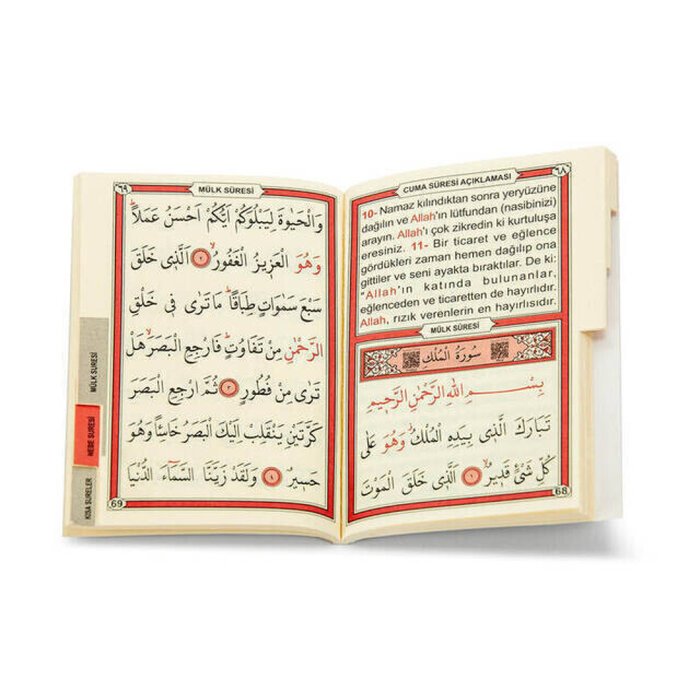 ٦٨
CUMA SÛRESİ AÇIKLAMASI
10- Namaz kılındıktan sonra yeryüzüne
dağılın ve Allah'ın lütfundan (nasibinizi)
arayın. Allah'ı çok zikredin ki kurtuluşa
eresiniz. 11- Bir ticaret ve eğlence
gördükleri zaman hemen dağılıp ona
gittiler ve seni ayakta bıraktılar. De ki:
"Allah'ın katında bulunanlar,
eğlenceden ve ticaretten de hayırlısıdır.
Allah, rızık verenlerin en hayırlısıdır.
MÜLK SÛRESİ
سُورَةُ الْمُلْكِ
بِسْمِ اللّٰهِ الرَّحْمٰنِ الرَّحِيمِ
تَبَارَكَ الَّذٖي بِيَدِهِ الْمُلْكُ وَهُوَ عَلٰى
كُلِّ شَيْءٍ قَدٖيرٌ ۙ ١ اَلَّذٖي خَلَقَ الْمَوْتَ
68
٦٩
MÜLK SÛRESİ
وَالْحَيٰوةَ لِيَبْلُوَكُمْ اَيُّكُمْ اَحْسَنُ عَمَلًا ؕ
وَهُوَ الْعَزٖيزُ الْغَفُورُ ۙ ٢ اَلَّذٖي خَلَقَ
سَبْعَ سَمٰوَاتٍ طِبَاقًا ؕ مَا تَرٰى فٖي خَلْقِ
الرَّحْمٰنِ مِنْ تَفَاوُتٍ ؕ فَارْجِعِ الْبَصَرَ ۙ هَلْ
تَرٰى مِنْ فُطُورٍ ٣ ثُمَّ ارْجِعِ الْبَصَرَ
كَرَّتَيْنِ يَنْقَلِبْ اِلَيْكَ الْبَصَرُ خَاسِئًا وَهُوَ
حَسٖيرٌ ٤ وَلَقَدْ زَيَّنَّا السَّمَٓاءَ الدُّنْيَا
69
MÜLK SURESİ
NEBE SURESİ
KISA SURELER